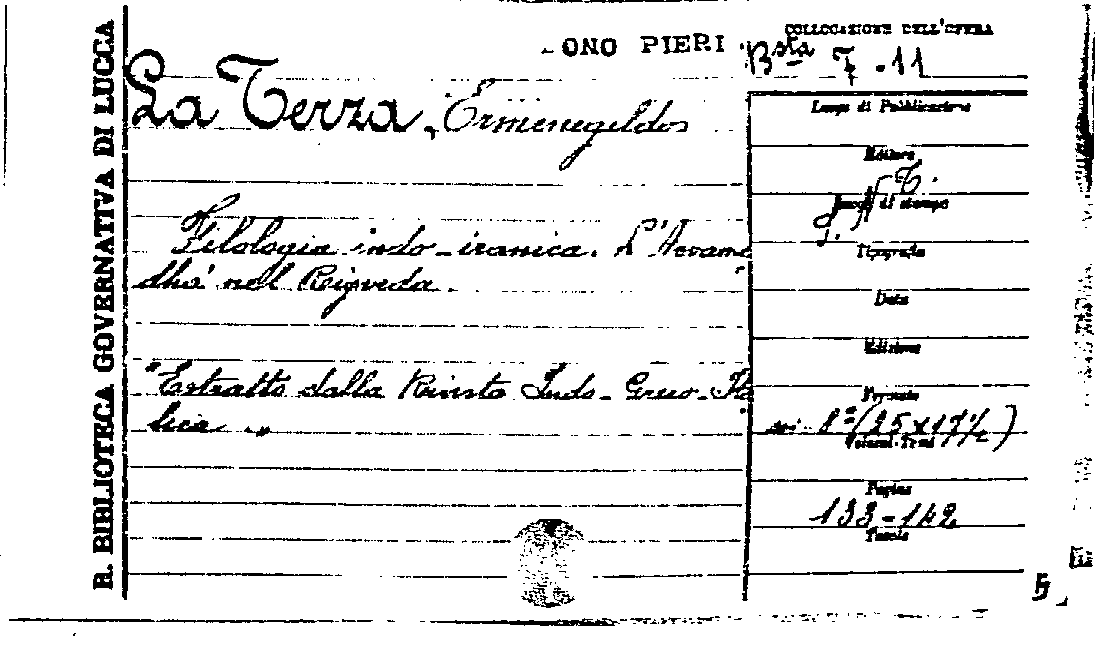 R. BIBLIOTECA GOVERNATIVA DI LUCCA
ONO PIERI
COLLOCAZIONE DELL'OPERA
Bsta 7 - 11
La Terza, Ermenegildo
Luogo di Pubblicazione
Editore
Luogo di stampa
Tipografia
Data
Edizione
Formato
in- 8° (25 x 17½)
Volumi-Tomi
Pagine
133-142
Tavole
Filologia indo-iranica. L'Acvame
dha nel Rigveda.
"Estratto dalla Rivista Indo-Greco-Ita
lica"